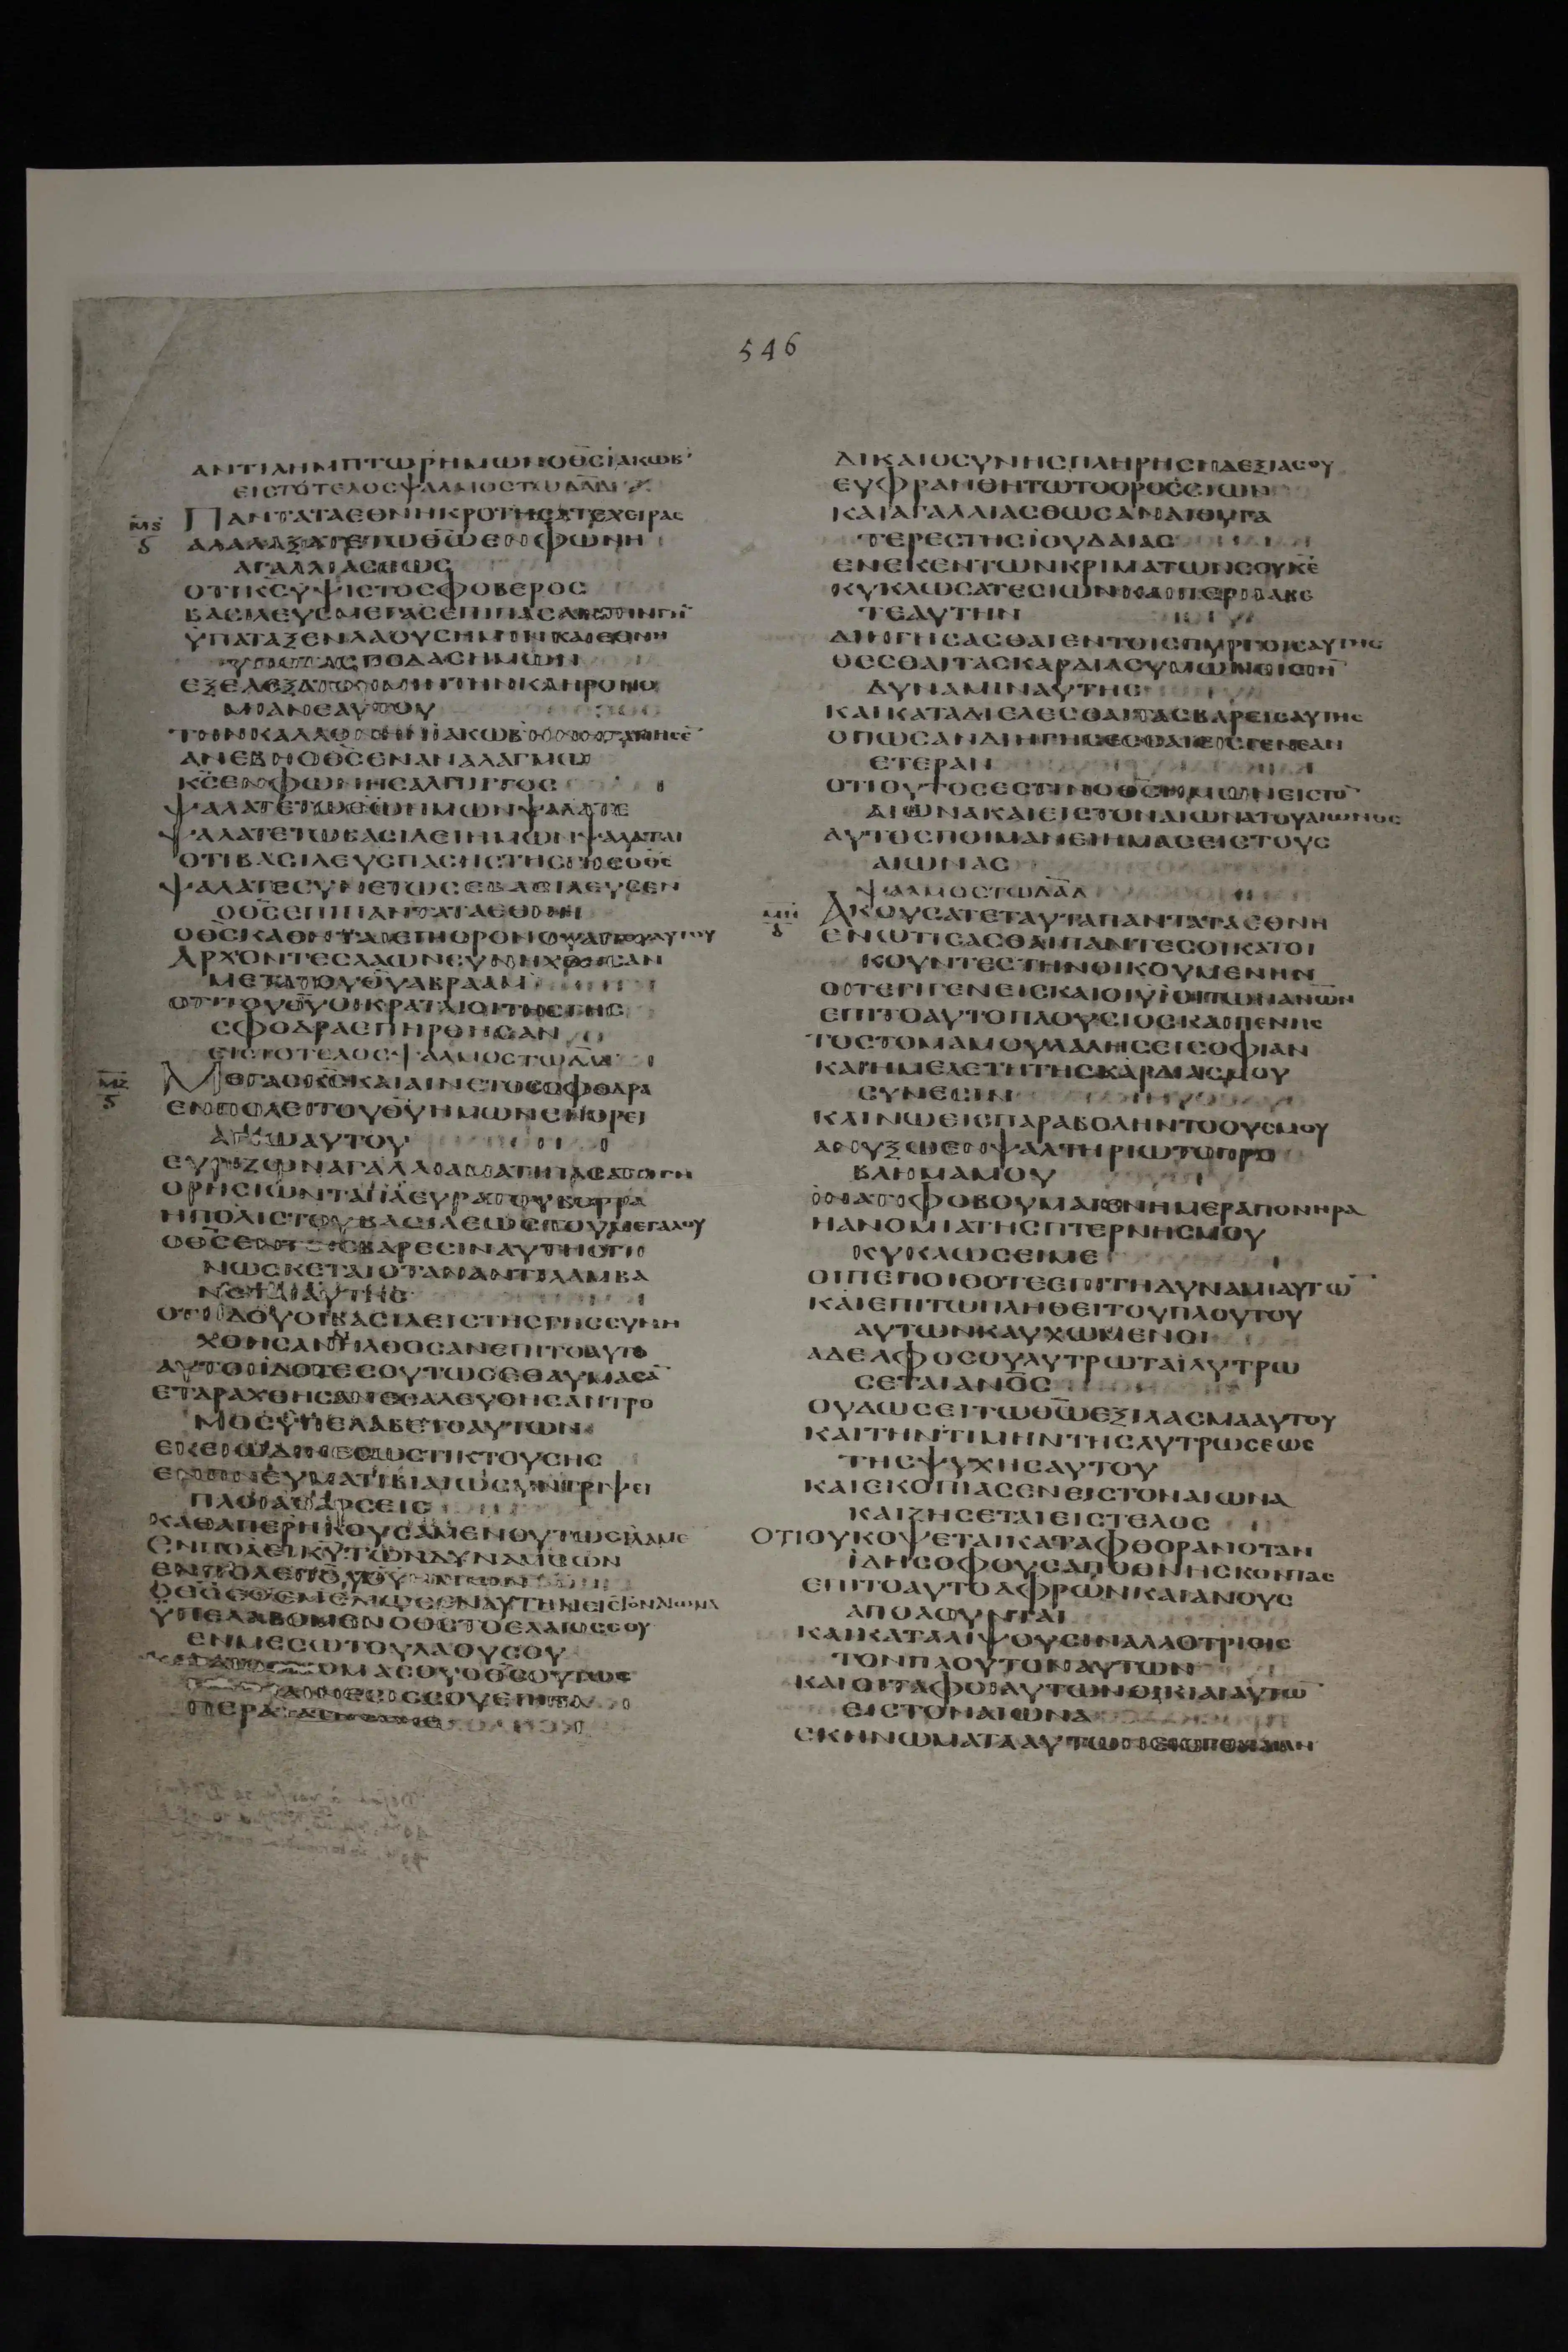 546
ΑΝΤΙΛΗΜΠΤΩΡΗΜΩΝΟΘ̅Σ̅ΪΑΚΩΒ
ΕΙΣΤΟΤΕΛΟΣΨΑΛΜΟΣ
ΜϚ
ΠΑΝΤΑΤΑΕΘΝΗΚΡΟΤΗΣΑΤΕΧΕΙΡΑΣ
Δ
ΑΛΑΛΑΞΑΤΕΤΩΘ̅Ω̅ΕΝΦΩΝΗ
ΑΓΑΛΛΙΑΣΕΩΣ
ΟΤΙΚ̅Σ̅ΥΨΙΣΤΟΣΦΟΒΕΡΟΣ
ΒΑΣΙΛΕΥΣΜΕΓΑΣΕΠΙΠΑΣΑΝΤΗΝΓΗ̅
ΫΠΑΤΑΞΕΝΛΑΟΥΣΗΜΙΝΚΑΙΕΘΝΗ
ΥΠΟΤΟΥΣΠΟΔΑΣΗΜΩΝ
ΕΞΕΛΕΞΑΤΟΗΜΙΝΤΗΝΚΛΗΡΟΝΟ
ΜΙΑΝΕΑΥΤΟΥ
ΤΗΝΚΑΛΛΟΝΗΝΪΑΚΩΒ
ΑΝΕΒΗΟΘ̅Σ̅ΕΝΑΛΑΛΑΓΜΩ
Κ̅Σ̅ΕΝΦΩΝΗΣΑΛΠΙΓΓΟΣ
ΨΑΛΑΤΕΤΩΘ̅Ω̅ΗΜΩΝΨΑΛΑΤΕ
ΨΑΛΑΤΕΤΩΒΑΣΙΛΕΙΗΜΩΝΨΑΛΑΤΑΙ
ΟΤΙΒΑΣΙΛΕΥΣΠΑΣΗΣΤΗΣΓΗΣΟΘ̅Σ̅
ΨΑΛΑΤΕΣΥΝΕΤΩΣΕΒΑΣΙΛΕΥΣΕΝ
ΟΘ̅Σ̅ΕΠΙΠΑΝΤΑΤΑΕΘΝΗ
ΟΘ̅Σ̅ΚΑΘΗΤΑΙΕΠΙΘΡΟΝΟΥΑΓΙΟΥΑΥΤΟΥ
ΑΡΧΟΝΤΕΣΛΑΩΝΣΥΝΗΧΘΗΣΑΝ
ΜΕΤΑΤΟΥΘ̅Υ̅ΑΒΡΑΑΜ
ΟΤΙΤΟΥΘ̅Υ̅ΟΙΚΡΑΤΑΙΟΙΤΗΣΓΗΣ
ΣΦΟΔΡΑΕΠΗΡΘΗΣΑΝ
ΕΙΣΤΟΤΕΛΟΣΨΑΛΜΟΣΤΩΔ̅Α̅Δ̅
ΜΖ
ΜΕΓΑΣΚ̅Σ̅ΚΑΙΑΙΝΕΤΟΣΣΦΟΔΡΑ
ΕΝΠΟΛΕΙΤΟΥΘ̅Υ̅ΗΜΩΝΕΝΟΡΕΙ
ΑΓΙΩΑΥΤΟΥ
ΕΥΡΙΖΩΝΑΓΑΛΛΙΑΜΑΤΙΠΑΣΑΤΗΓΗ
ΟΡΗΣΙΩΝΤΑΠΛΕΥΡΑΤΟΥΒΟΡΡΑ
ΗΠΟΛΙΣΤΟΥΒΑΣΙΛΕΩΣΤΟΥΜΕΓΑΛΟΥ
ΟΘ̅Σ̅ΕΝΤΑΙΣΒΑΡΕΣΙΝΑΥΤΗΣΓΙ
ΝΩΣΚΕΤΑΙΟΤΑΝΑΝΤΙΛΑΜΒΑ
ΝΕΤΑΙΑΥΤΗΣ
ΟΤΙΙΔΟΥΟΙΒΑΣΙΛΕΙΣΤΗΣΓΗΣΣΥΝΗ
ΧΘΗΣΑΝΗΛΘΟΣΑΝΕΠΙΤΟΑΥΤΟ
ΑΥΤΟΙΪΔΟΤΕΣΟΥΤΩΣΕΘΑΥΜΑΣΑ̅
ΕΤΑΡΑΧΘΗΣΑΝΕΣΑΛΕΥΘΗΣΑΝΤΡΟ
ΜΟΣΫΠΕΛΑΒΕΤΟΑΥΤΩΝ
ΕΚΕΙΩΔΙΝΕΣΩΣΤΙΚΤΟΥΣΗΣ
ΕΝΠΝΕΥΜΑΤΙΒΙΑΙΩΣΥΝΤΡΙΨΕΙ
ΠΛΟΙΑΘΑΡΣΕΙΣ
ΚΑΘΑΠΕΡΗΚΟΥΣΑΜΕΝΟΥΤΩΣΙΔΑΜΕ
ΕΝΠΟΛΕΙΚ̅Υ̅ΤΩΝΔΥΝΑΜΕΩΝ
ΕΝΠΟΛΕΙΤΟΥΘ̅Υ̅ΗΜΩΝ
ΟΘ̅Σ̅ΕΘΕΜΕΛΙΩΣΕΝΑΥΤΗΝΕΙΣΤΟΝΑΙΩΝΑ
ΫΠΕΛΑΒΟΜΕΝΟΘ̅Σ̅ΤΟΕΛΑΙΟΣΣΟΥ
ΕΝΜΕΣΩΤΟΥΛΑΟΥΣΟΥ
ΟΜΑΣΟΥΟΘ̅Σ̅ΟΥΤΩΣ
ΑΙΝΕΣΙΣΣΟΥΕΠΙΤΑ
ΠΕΡΑΤΑ
ΔΙΚΑΙΟΣΥΝΗΣΠΛΗΡΗΣΗΔΕΞΙΑΣΟΥ
ΕΥΦΡΑΝΘΗΤΩΤΟΟΡΟΣΣΙΩΝ
ΚΑΙΑΓΑΛΛΙΑΣΘΩΣΑΝΑΙΘΥΓΑ
ΤΕΡΕΣΤΗΣΪΟΥΔΑΙΑΣ
ΕΝΕΚΕΝΤΩΝΚΡΙΜΑΤΩΝΣΟΥΚ̅Ε̅
ΚΥΚΛΩΣΑΤΕΣΙΩΝΚΑΙΠΕΡΙΛΑΒΕ
ΤΕΑΥΤΗΝ
ΔΙΗΓΗΣΑΣΘΑΙΕΝΤΟΙΣΠΥΡΓΟΙΣΑΥΤΗΣ
ΘΕΣΘΑΙΤΑΣΚΑΡΔΙΑΣΥΜΩΝΕΙΣΤΗ̅
ΔΥΝΑΜΙΝΑΥΤΗΣ
ΚΑΙΚΑΤΑΔΙΕΛΕΣΘΑΙΤΑΣΒΑΡΕΙΣΑΥΤΗΣ
ΟΠΩΣΑΝΔΙΗΓΗΣΕΣΘΑΙΕΙΣΓΕΝΕΑΝ
ΕΤΕΡΑΝ
ΟΤΙΟΥΤΟΣΕΣΤΙΝΟΘ̅Σ̅ΗΜΩΝΕΙΣΤΟ̅
ΑΙΩΝΑΚΑΙΕΙΣΤΟΝΑΙΩΝΑΤΟΥΑΙΩΝΟΣ
ΑΥΤΟΣΠΟΙΜΑΝΕΙΗΜΑΣΕΙΣΤΟΥΣ
ΑΙΩΝΑΣ
ΨΑΛΜΟΣΤΩΔ̅Α̅Δ̅
ΜΗ
ΑΚΟΥΣΑΤΕΤΑΥΤΑΠΑΝΤΑΤΑΕΘΝΗ
Δ
ΕΝΩΤΙΣΑΣΘΑΙΠΑΝΤΕΣΟΙΚΑΤΟΙ
ΚΟΥΝΤΕΣΤΗΝΟΙΚΟΥΜΕΝΗΝ
ΟΙΤΕΓΗΓΕΝΕΙΣΚΑΙΟΙΥΪΟΙΤΩΝΑΝ̅Ω̅Ν̅
ΕΠΙΤΟΑΥΤΟΠΛΟΥΣΙΟΣΚΑΙΠΕΝΗΣ
ΤΟΣΤΟΜΑΜΟΥΛΑΛΗΣΕΙΣΟΦΙΑΝ
ΚΑΙΗΜΕΛΕΤΗΤΗΣΚΑΡΔΙΑΣΜΟΥ
ΣΥΝΕΣΙΝ
ΚΛΙΝΩΕΙΣΠΑΡΑΒΟΛΗΝΤΟΟΥΣΜΟΥ
ΑΝΥΞΩΕΝΨΑΛΤΗΡΙΩΤΟΠΡΟ
ΒΛΗΜΑΜΟΥ
ΪΝΑΤΙΦΟΒΟΥΜΑΙΕΝΗΜΕΡΑΠΟΝΗΡΑ
ΗΑΝΟΜΙΑΤΗΣΠΤΕΡΝΗΣΜΟΥ
ΚΥΚΛΩΣΕΙΜΕ
ΟΙΠΕΠΟΙΘΟΤΕΣΕΠΙΤΗΔΥΝΑΜΙΑΥΤΩ̅
ΚΑΙΕΠΙΤΩΠΛΗΘΕΙΤΟΥΠΛΟΥΤΟΥ
ΑΥΤΩΝΚΑΥΧΩΜΕΝΟΙ
ΑΔΕΛΦΟΣΟΥΛΥΤΡΩΤΑΙΛΥΤΡΩ
ΣΕΤΑΙΑΝ̅Ο̅Σ̅
ΟΥΔΩΣΕΙΤΩΘ̅Ω̅ΕΞΙΛΑΣΜΑΑΥΤΟΥ
ΚΑΙΤΗΝΤΙΜΗΝΤΗΣΛΥΤΡΩΣΕΩΣ
ΤΗΣΨΥΧΗΣΑΥΤΟΥ
ΚΑΙΕΚΟΠΙΑΣΕΝΕΙΣΤΟΝΑΙΩΝΑ
ΚΑΙΖΗΣΕΤΑΙΕΙΣΤΕΛΟΣ
ΟΤΙΟΥΚΟΨΕΤΑΙΚΑΤΑΦΘΟΡΑΝΟΤΑΝ
ΪΔΗΣΟΦΟΥΣΑΠΟΘΝΗΣΚΟΝΤΑΣ
ΕΠΙΤΟΑΥΤΟΑΦΡΩΝΚΑΙΑΝΟΥΣ
ΑΠΟΛΟΥΝΤΑΙ
ΚΑΙΚΑΤΑΛΙΨΟΥΣΙΝΑΛΛΟΤΡΙΟΙΣ
ΤΟΝΠΛΟΥΤΟΝΑΥΤΩΝ
ΚΑΙΟΙΤΑΦΟΙΑΥΤΩΝΟΙΚΙΑΙΑΥΤΩ̅
ΕΙΣΤΟΝΑΙΩΝΑ
ΣΚΗΝΩΜΑΤΑΑΥΤΩΝ